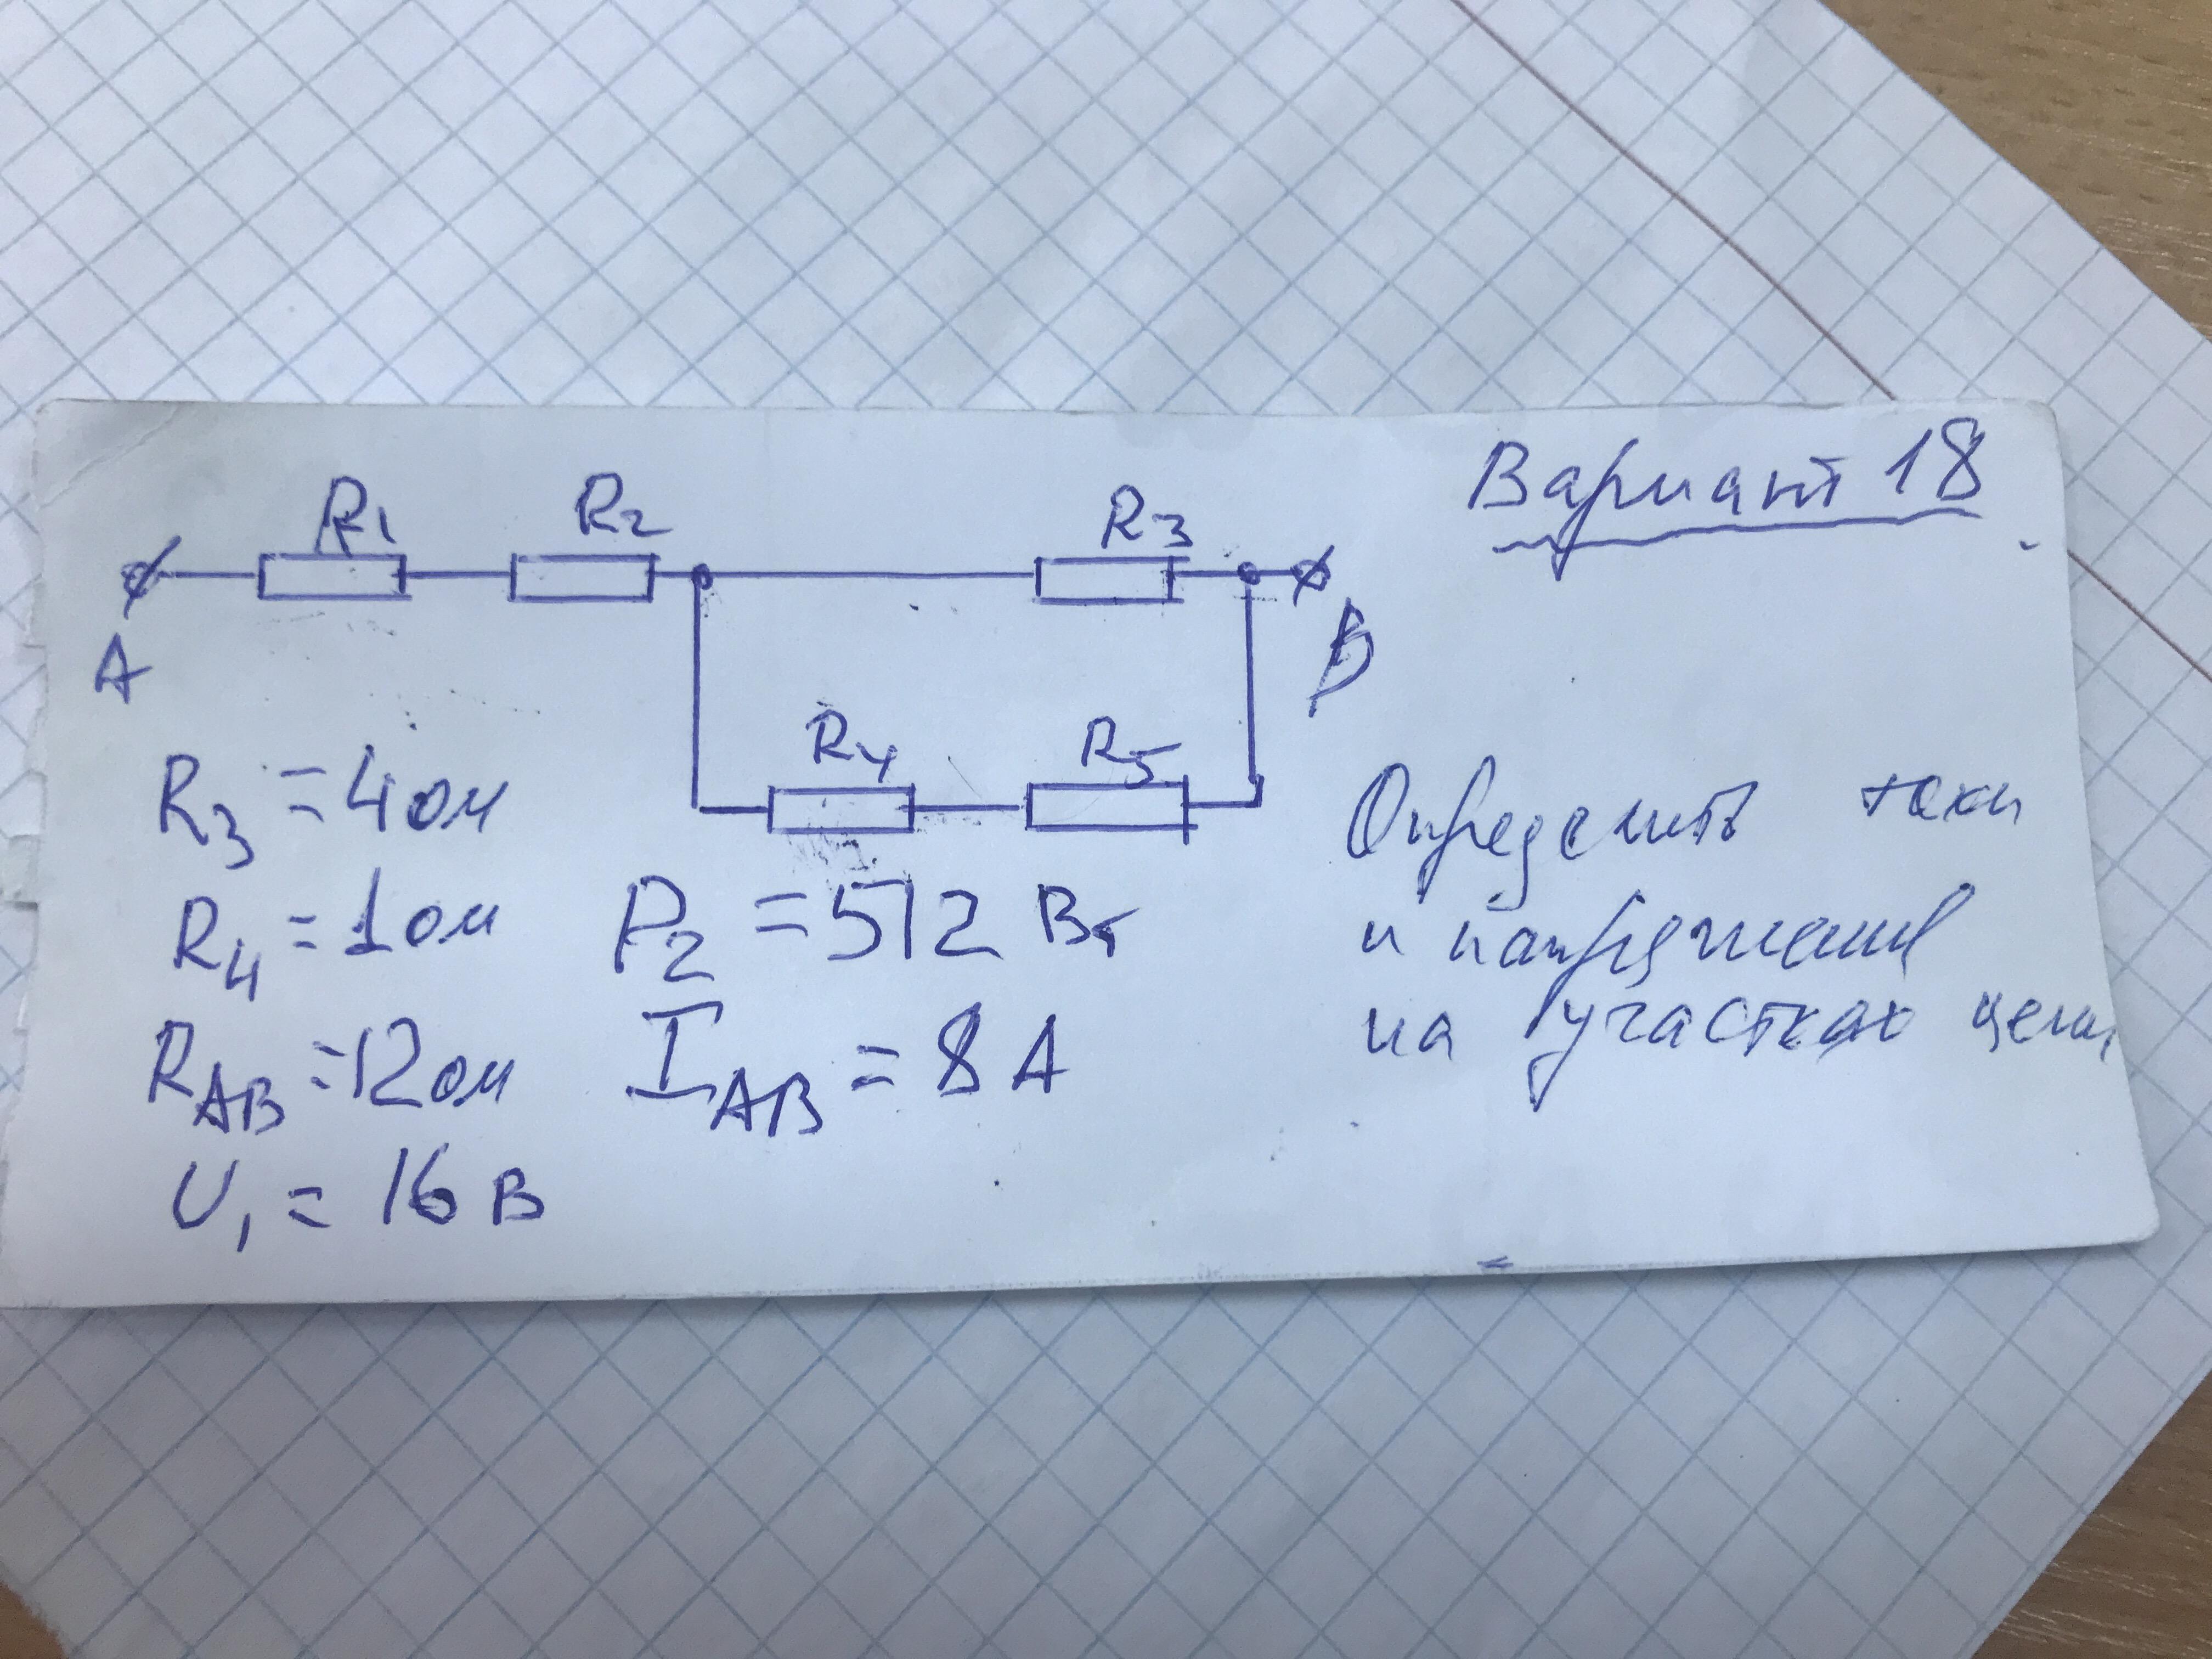 Вариант 18
R1 R2 R3
A B
R4 R5
R3 = 4 ом
R4 = 1 ом
RAB = 12 ом
U1 = 16 В
P2 = 512 Вт
IAB = 8 А
Определить токи
и напряжения
на участках цепи